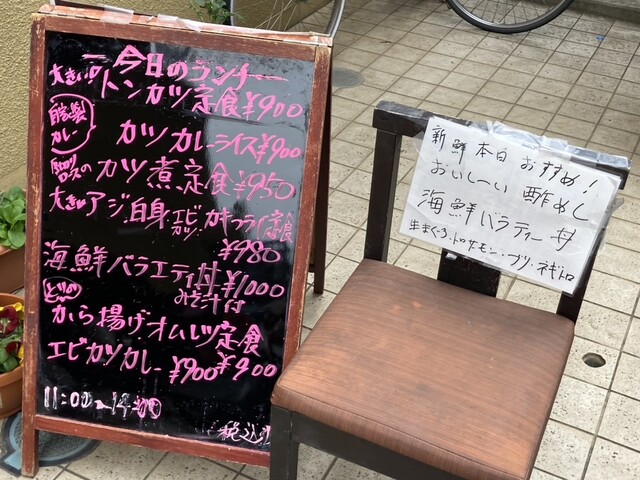 今日のランチ
大きい!トンカツ定食¥900
自家製カレー
カツカレーライス¥900
厚切りロースの
カツ煮定食¥950
大きいアジ白身エビカツ・カキフライ定食
¥980
海鮮バラエティ丼¥1000
みそ汁付
から揚げオムレツ定食
¥900
エビカツカレー¥900
11:00~14:00
税込
新鮮本日おすすめ!
おいし〜い酢めし
海鮮バラティー丼
生まぐろ・トロサーモン・ブリ・ネギトロ